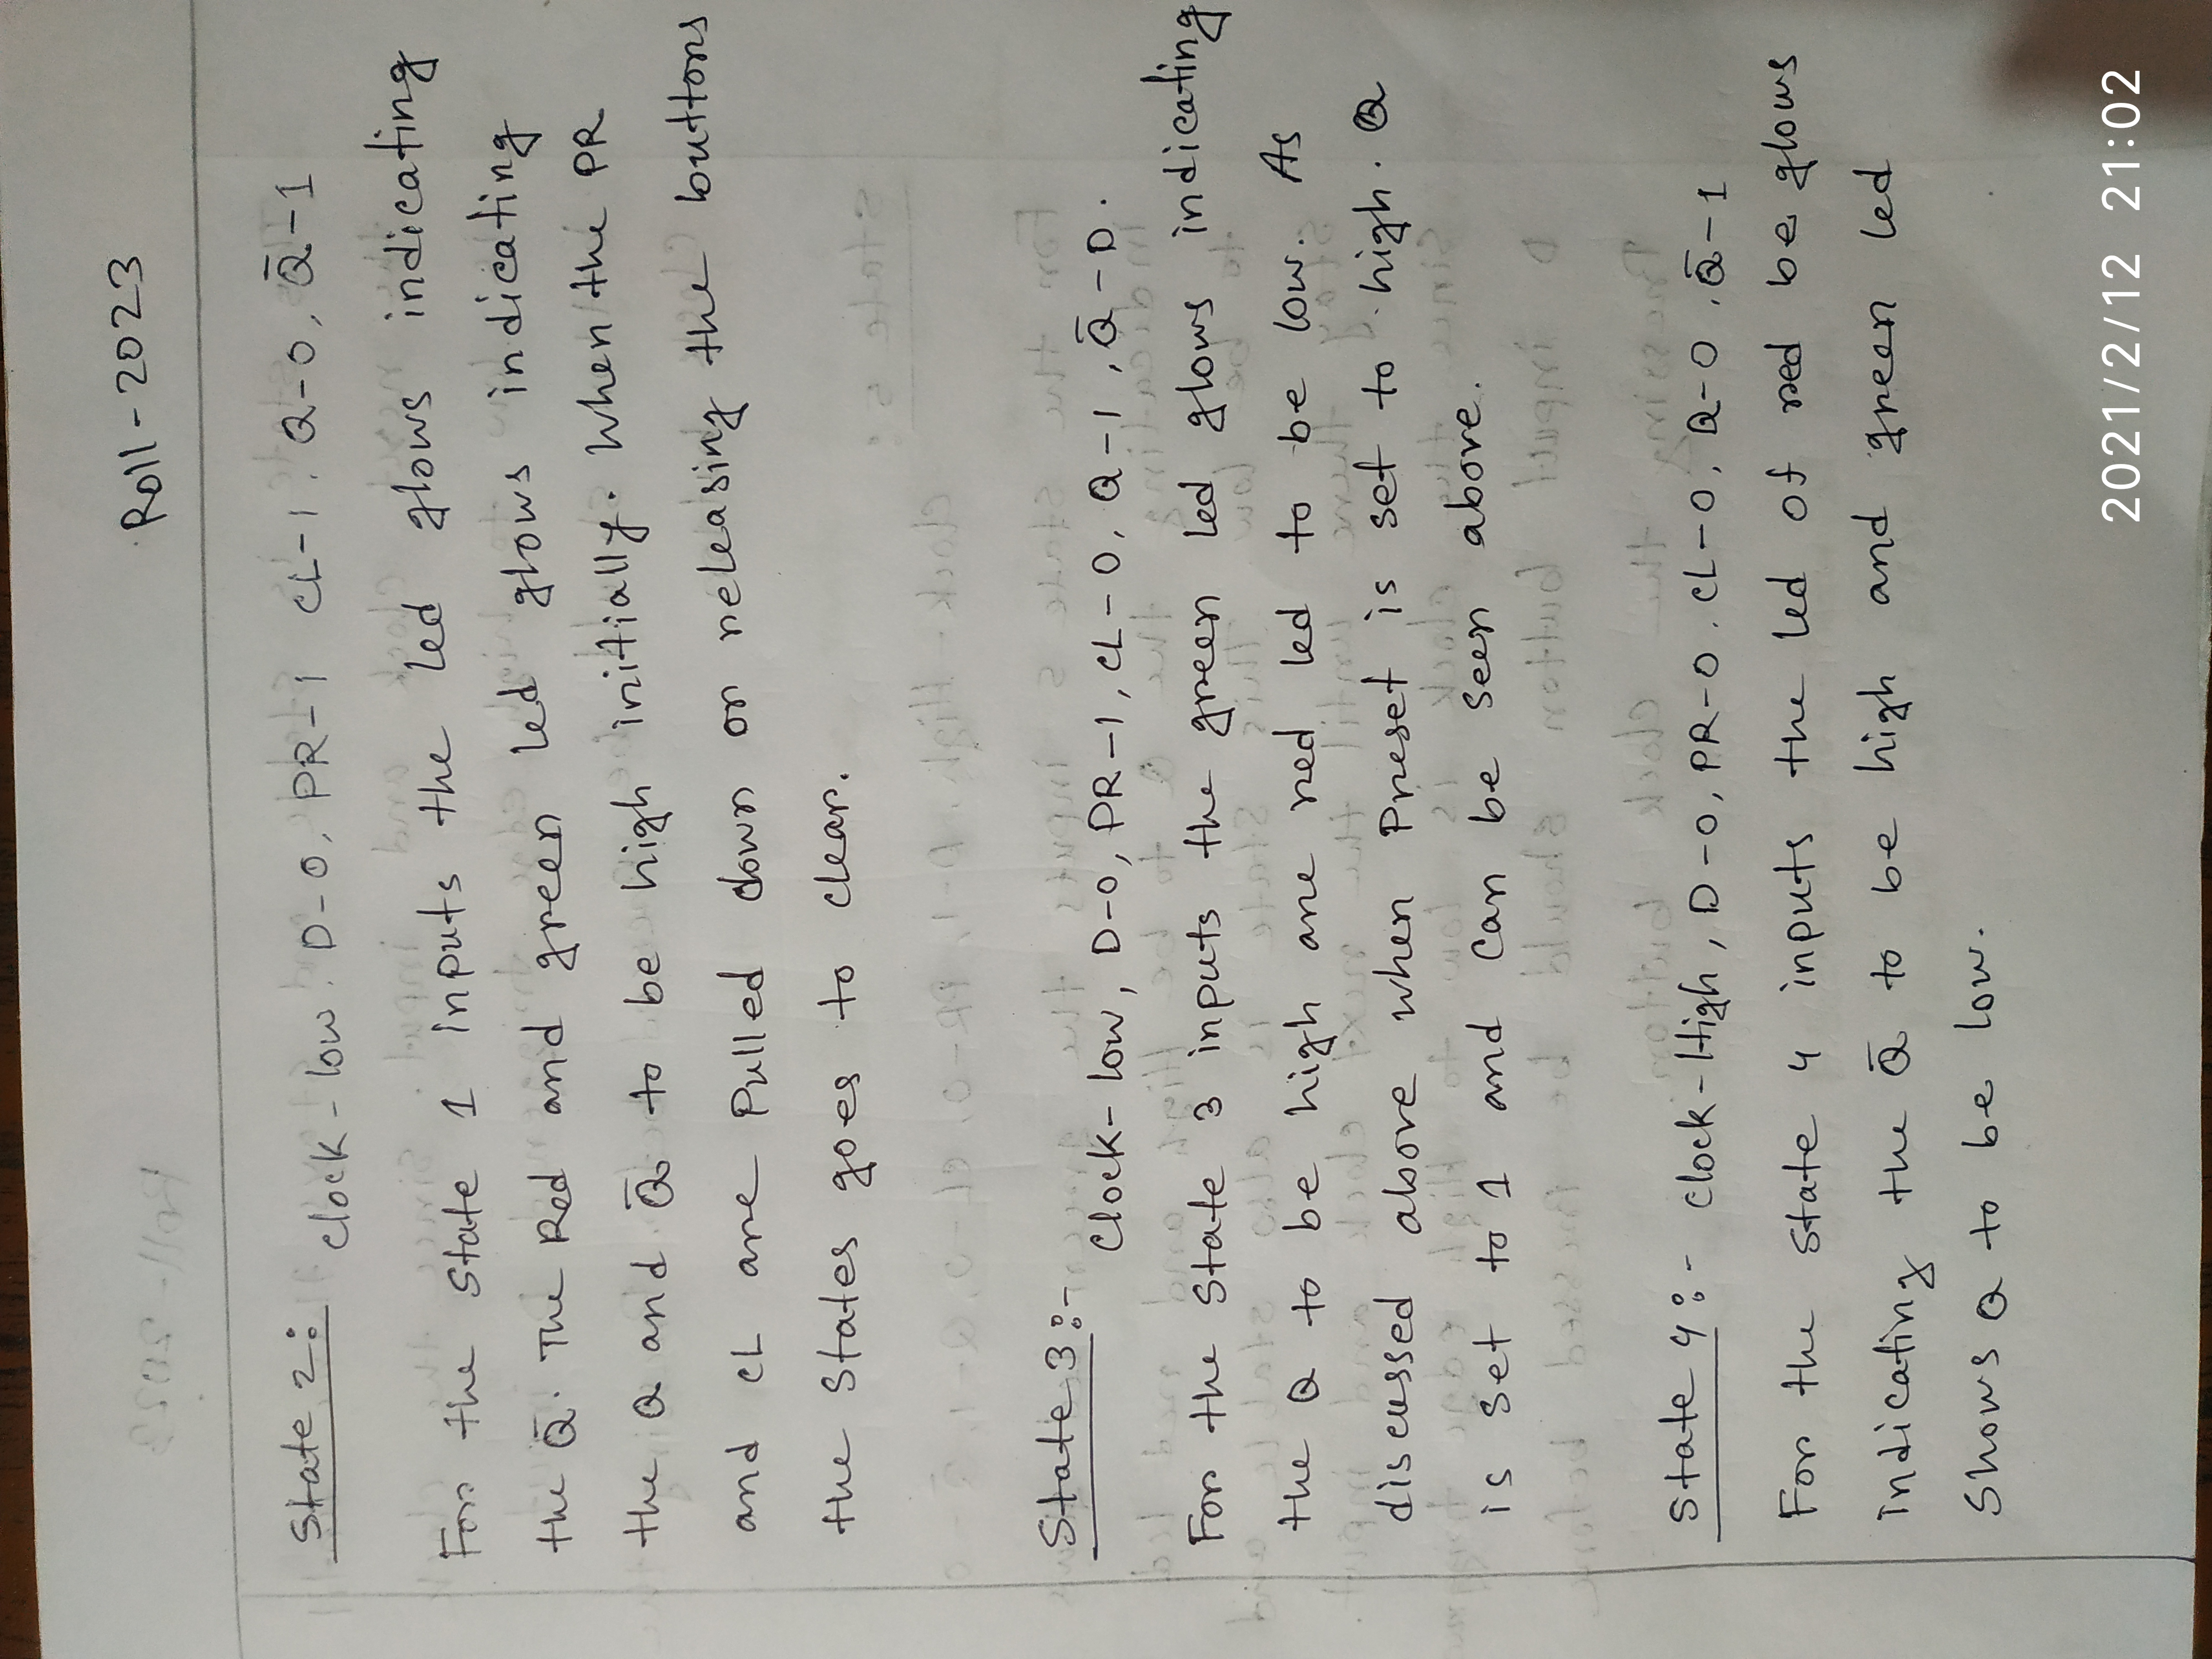 Roll-2023
State 2:
Clock-low. D-0, PR-1 CL-1, Q-0, Q̄-1
For the State 1 inputs the led glows indicating
the Q̄. The Red and green led glows indicating
the Q and Q̄ to be high initially. When the PR
and CL are Pulled down or releasing the buttons
the States goes to clear.
State 3:-
Clock-low, D-0, PR-1, CL-0, Q-1, Q̄-0.
For the State 3 inputs the green led glows indicating
the Q to be high are red led to be low. As
discussed above when Preset is set to high. Q
is set to 1 and can be seen above.
State 4:- Clock-High, D-0, PR-0. CL-0, Q-0, Q̄-1
For the state 4 inputs the led of red be glows
indicating the Q̄ to be high and green led
Shows Q to be low.
2021/2/12 21:02